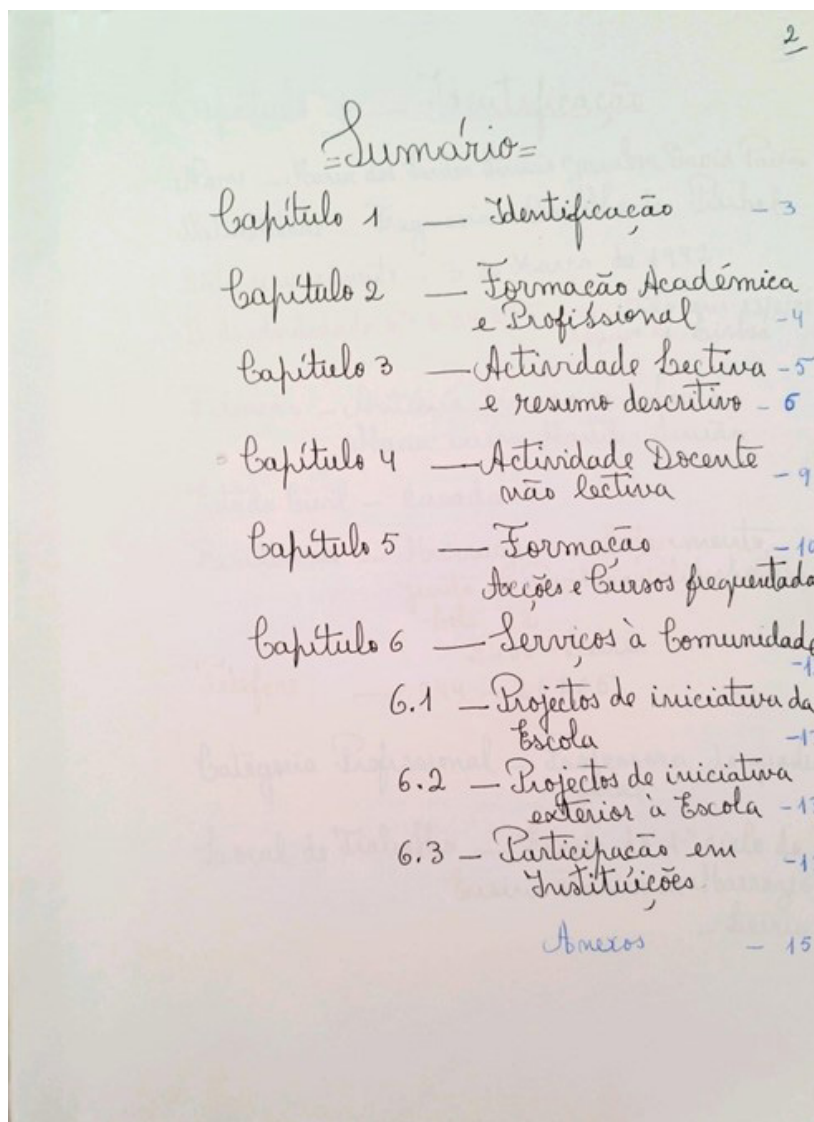 2
=Sumário=
Capítulo 1 — Identificação - 3
Capítulo 2 — Formação Académica
e Profissional - 4
Capítulo 3 — Actividade Lectiva - 5
e resumo descritivo - 6
Capítulo 4 — Actividade Docente
não lectiva - 9
Capítulo 5 — Formação - 10
Acções e Cursos frequentado
Capítulo 6 — Serviços à Comunidade
6.1 — Projectos de iniciativa da
Escola
6.2 — Projectos de iniciativa
exterior à Escola
6.3 — Participação em
Instituições
Anexos - 15